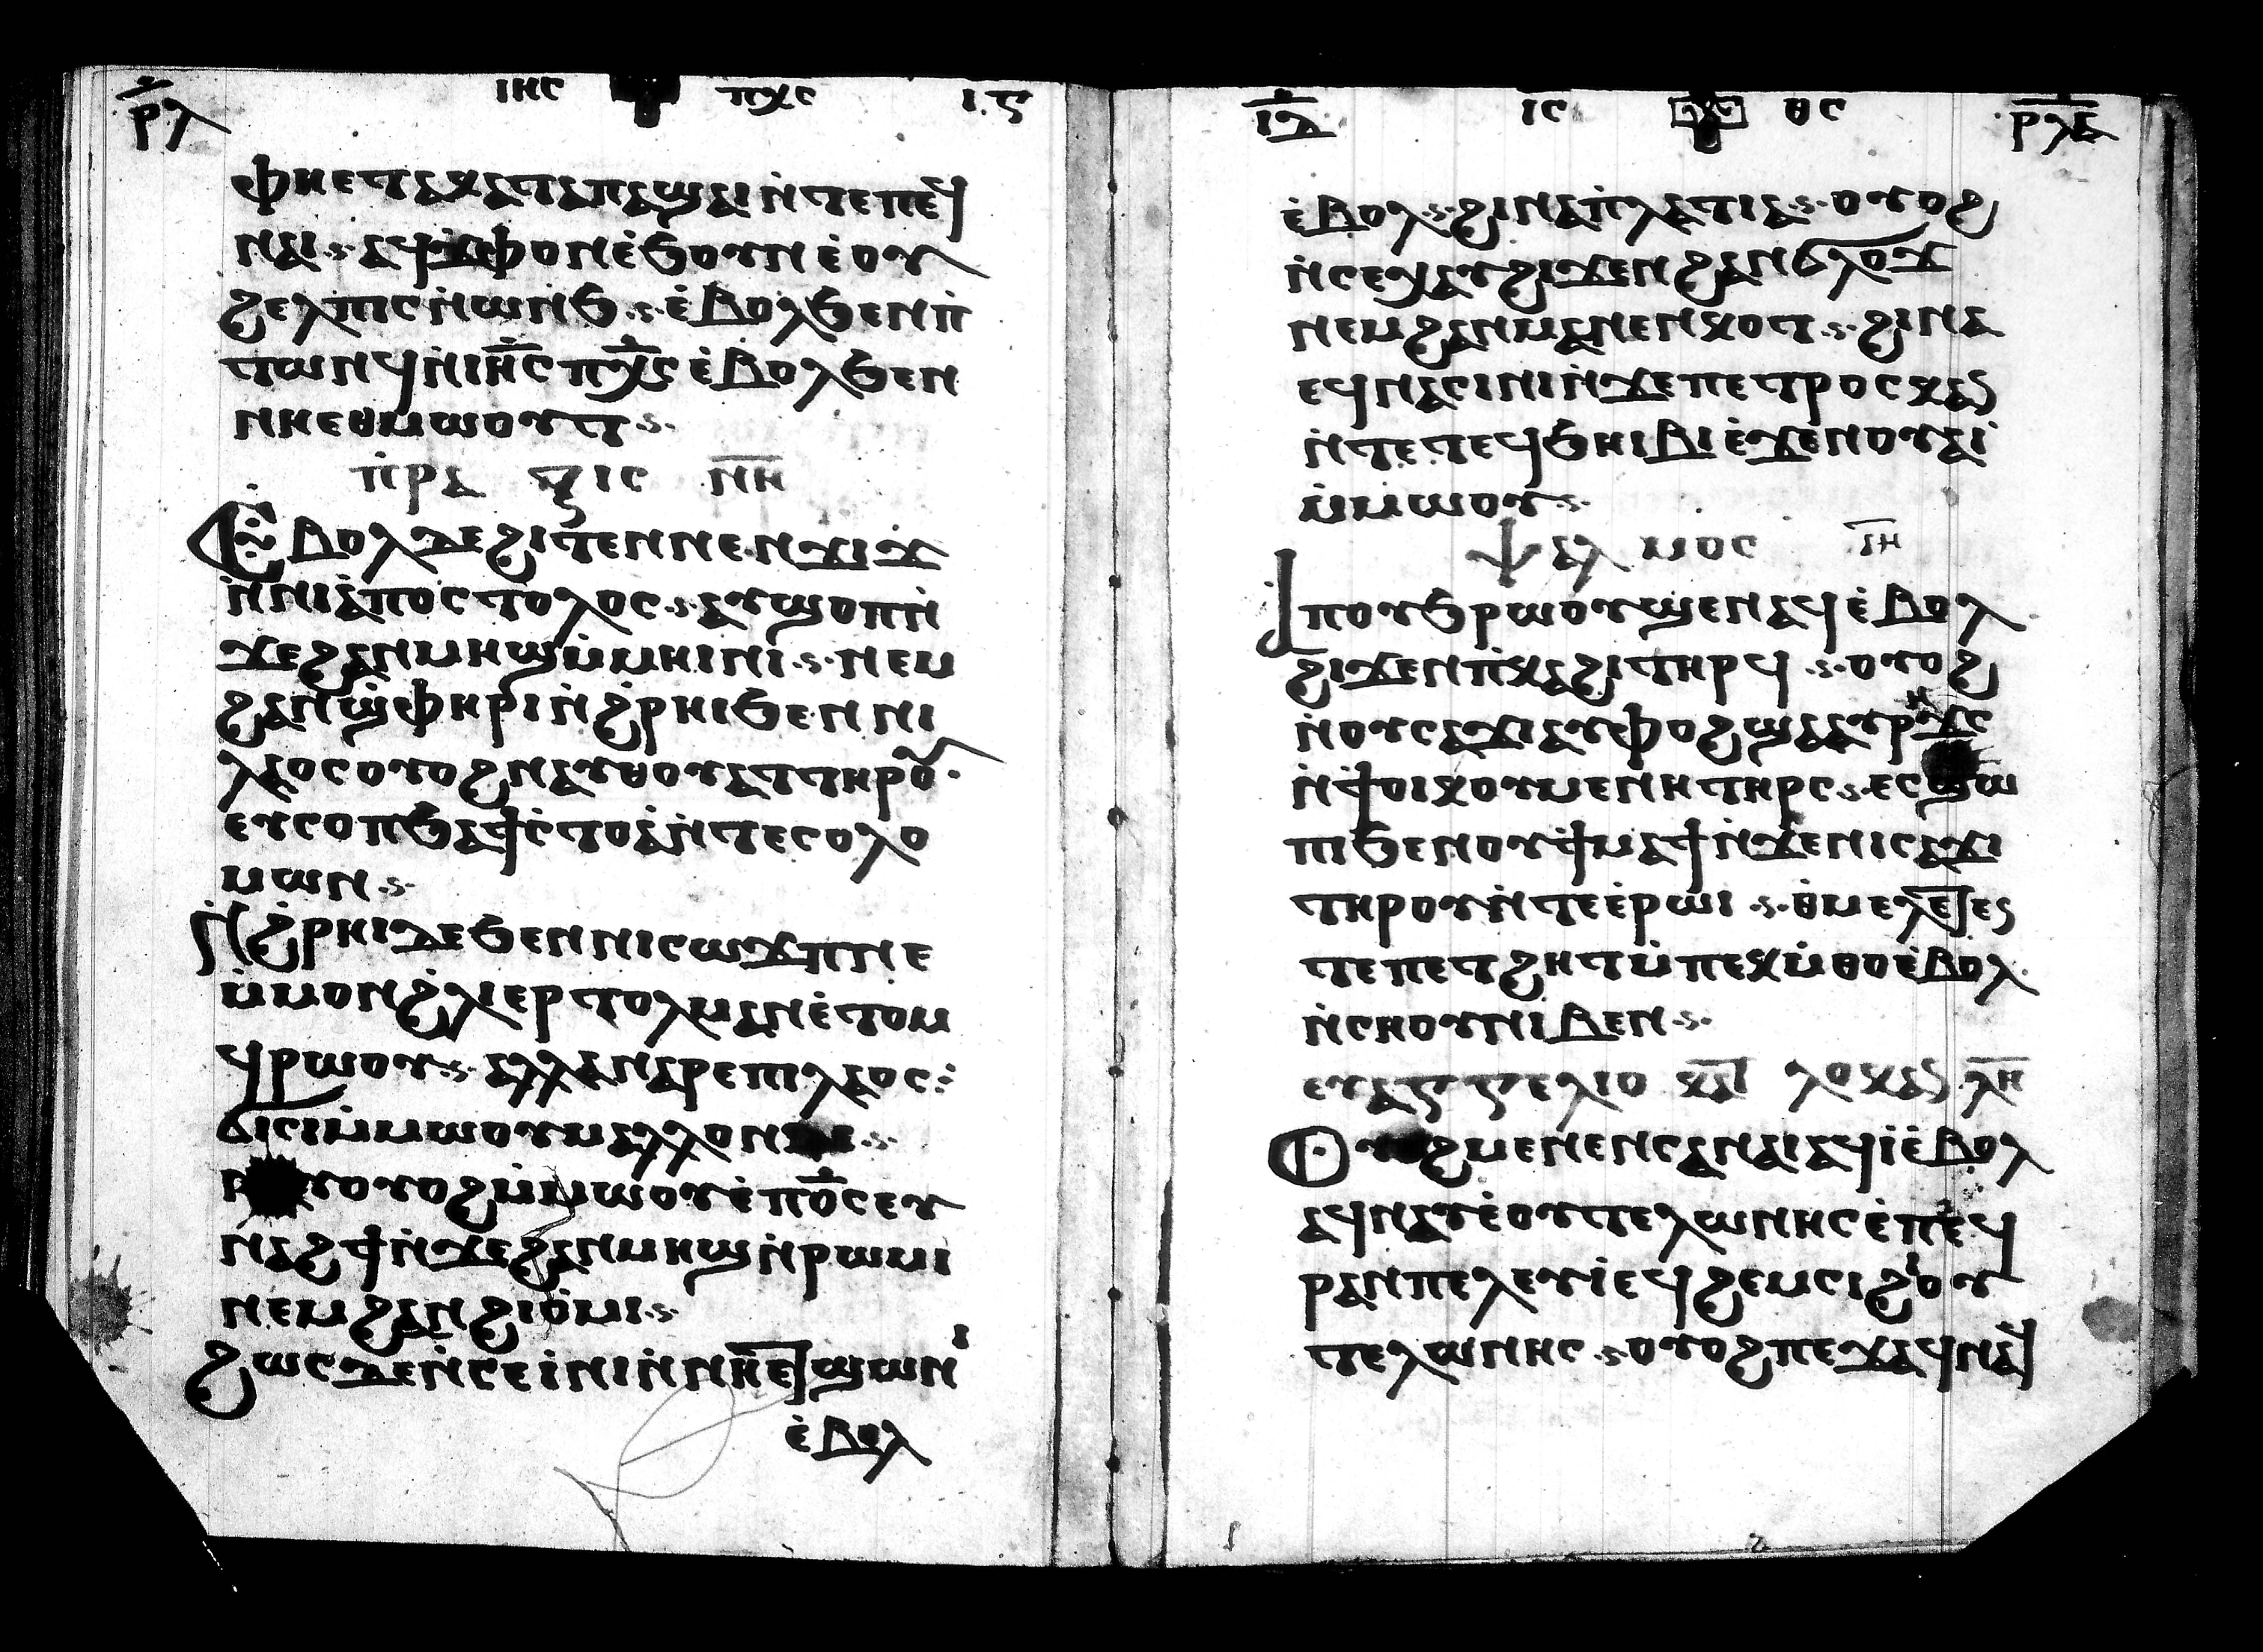 ⲣ̅ⲗ ⲓⲏⲥ ⲡⲭⲥ ⲓ.ⲋ
ⲫⲏⲉⲧⲁⲕⲁⲧⲁⲡⲁϣⲁⲓⲛ̀ⲧⲉⲡⲉϥ
ⲛⲁⲓ·ⲋ·ⲁϥϫⲫⲟⲛⲉ̀ϧⲟⲩⲛⲉ̀ⲟⲩ
ϩⲉⲗⲡⲓⲥⲛ̀ⲱⲛϧ·ⲋ·ⲉ̀ⲃⲟⲗϧⲉⲛⲡ̀
ⲧⲱⲛϥⲛ̀ⲓⲏ̅ⲥⲡⲭ̅ⲥⲉ̀ⲃⲟⲗϧⲉⲛ
ⲛⲏⲉⲑⲙⲱⲟⲩⲧ·ⲋ·
ⲡ̀ⲣⲁ ⲝⲓⲥ ⲛ̅ⲏ̅
Ⲉⲃⲟⲗⲇⲉϩⲓⲧⲉⲛⲛⲉⲛϫⲓϫ
ⲛ̀ⲛⲓⲁ̀ⲡⲟⲥⲧⲟⲗⲟⲥ·ⲋ·ⲁⲩϣⲟⲡⲛ̀
ϫⲉϩⲁⲛⲙⲏϣⲙ̀ⲙⲏⲓⲛⲓ·ⲋ·ⲛⲉⲙ
ϩⲁⲛϣ̀ⲫⲏⲣⲓⲛ̀ϩ̀ⲣⲏⲓϧⲉⲛⲛⲓ
ⲗⲁⲟⲥⲟⲩⲟϩⲛⲁⲩⲑⲟⲩⲁⲧⲧⲏⲣⲟⲩ·
ⲉⲩⲥⲟⲡϧⲁϯⲥ̀ⲧⲟⲁ̀ⲛ̀ⲧⲉⲥⲟⲗⲟ
ⲙⲱⲛ·ⲋ·
Ⲛ̀ϩ̀ⲣⲏⲓⲇⲉϧⲉⲛⲛⲓⲥⲱϫⲡⲛⲉ
ⲙ̀ⲙⲟⲛϩ̀ⲗⲓⲉⲣⲧⲟⲗⲙⲁⲛⲉ̀ⲧⲟⲙ
ϥⲣⲱⲟⲩ·ⲋ·ⲁⲗⲗⲁⲛⲁⲣⲉⲡⲓⲗⲁⲟⲥ:
ϭⲓⲥⲓⲙ̀ⲙⲱⲟⲩⲙⲁⲗⲗⲟⲛ ·ⲋ·
ⲟⲩⲟϩⲙ̀ⲙⲱⲟⲩⲉ̀ⲡⲟ̅ⲥⲉⲩ
ⲛⲁϩϯⲛ̀ϫⲉϩⲁⲛⲙⲏϣⲛ̀ⲣⲱⲙⲓ
ⲛⲉⲙϩⲁⲛϩⲓⲟ̀ⲙⲓ·ⲋ·
ϩⲱⲥⲇⲉⲛ̀ⲥⲉⲓ̀ⲛⲓⲛ̀ⲛⲏⲉⲧϣⲱⲛⲓ
ⲉ̀ⲃⲟⲗ
ⲓ̅ⲇ̅ ⲓ̅ⲥ̅ ⲑⲥ ⲣⲗⲁ
ⲉ̀ⲃⲟⲗ·ⲋ·ϩⲓⲛⲁⲡ̀ⲗⲁⲧⲓⲁ·ⲋ·ⲟⲩⲟϩ
ⲛ̀ⲥⲉⲭⲁⲩϩⲓϫⲉⲛϩⲁⲛϭⲗⲟϫ
ⲛⲉⲙϩⲁⲛⲙⲁⲛⲉⲛⲕⲟⲧ·ⲋ·ϩⲓⲛⲁ
ⲉϥⲛⲁⲥⲓⲛⲓⲛ̀ϫⲉⲡⲉⲧⲣⲟⲥⲕⲁⲛ
ⲛ̀ⲧⲉⲧⲉϥϧⲏⲓⲃⲓⲉ̀ϫⲉⲛⲟⲩⲁⲓ̀
ⲙ̀ⲙⲱⲟⲩ·ⲋ·
ⲯⲁⲗ ⲙⲟⲥ ⲓ̅ⲏ̅
Ⲁⲡⲟⲩϧⲣⲱⲟⲩϣⲉⲛⲁϥⲉ̀ⲃⲟⲗ
ϩⲓϫⲉⲛⲡ̀ⲕⲁϩⲓⲧⲏⲣϥ·ⲋ·ⲟⲩⲟϩ
ⲛ̀ⲟⲩⲥⲁϫⲓⲁⲩⲫⲟϩϣⲁⲁⲩⲣⲏϫⲥ
ⲛ̀ϯⲟⲓⲕⲟⲩⲙⲉⲛⲏⲧⲏⲣⲥ·ⲋ·ⲉⲥϣⲱ
ⲡⲓϧⲉⲛⲟⲩϯⲙⲁϯⲛ̀ϫⲉⲛⲓⲥⲁϫⲓ
ⲧⲏⲣⲟⲩⲛ̀ⲧⲉⲉ̀ⲣⲱⲓ·ⲋ·ⲑ̀ⲙⲉⲗⲉⲧⲉⲥ
ⲧⲉⲡⲉⲧϩⲏⲧⲙ̀ⲡⲉⲕⲙ̀ⲑⲟⲉ̀ⲃⲟⲗ
ⲛ̀ⲥⲏⲟⲩⲛⲓⲃⲉⲛ·ⲋ·
ⲉⲩⲁⲅⲅⲉⲗⲓⲟ ⲕⲁⲧ ⲗⲟⲩⲕⲁⲛ ⲗ̅ⲏ̅
Ⲟⲩⲟϩⲙⲉⲛⲉⲛⲥⲁⲛⲁⲓⲁϥⲓ̀ⲉ̀ⲃⲟⲗ
ⲁϥⲛⲁⲩⲉ̀ⲟⲩⲧⲉⲗⲱⲛⲏⲥⲉ̀ⲡⲉϥ
ⲣⲁⲛⲡⲉⲗⲉⲩⲓ̀ⲉϥϩⲉⲙⲥⲓϩⲓⲟⲩ
ⲧⲉⲗⲱⲛⲏⲥ·ⲋ·ⲟⲩⲟϩⲡⲉϫⲁϥⲛⲁϥ